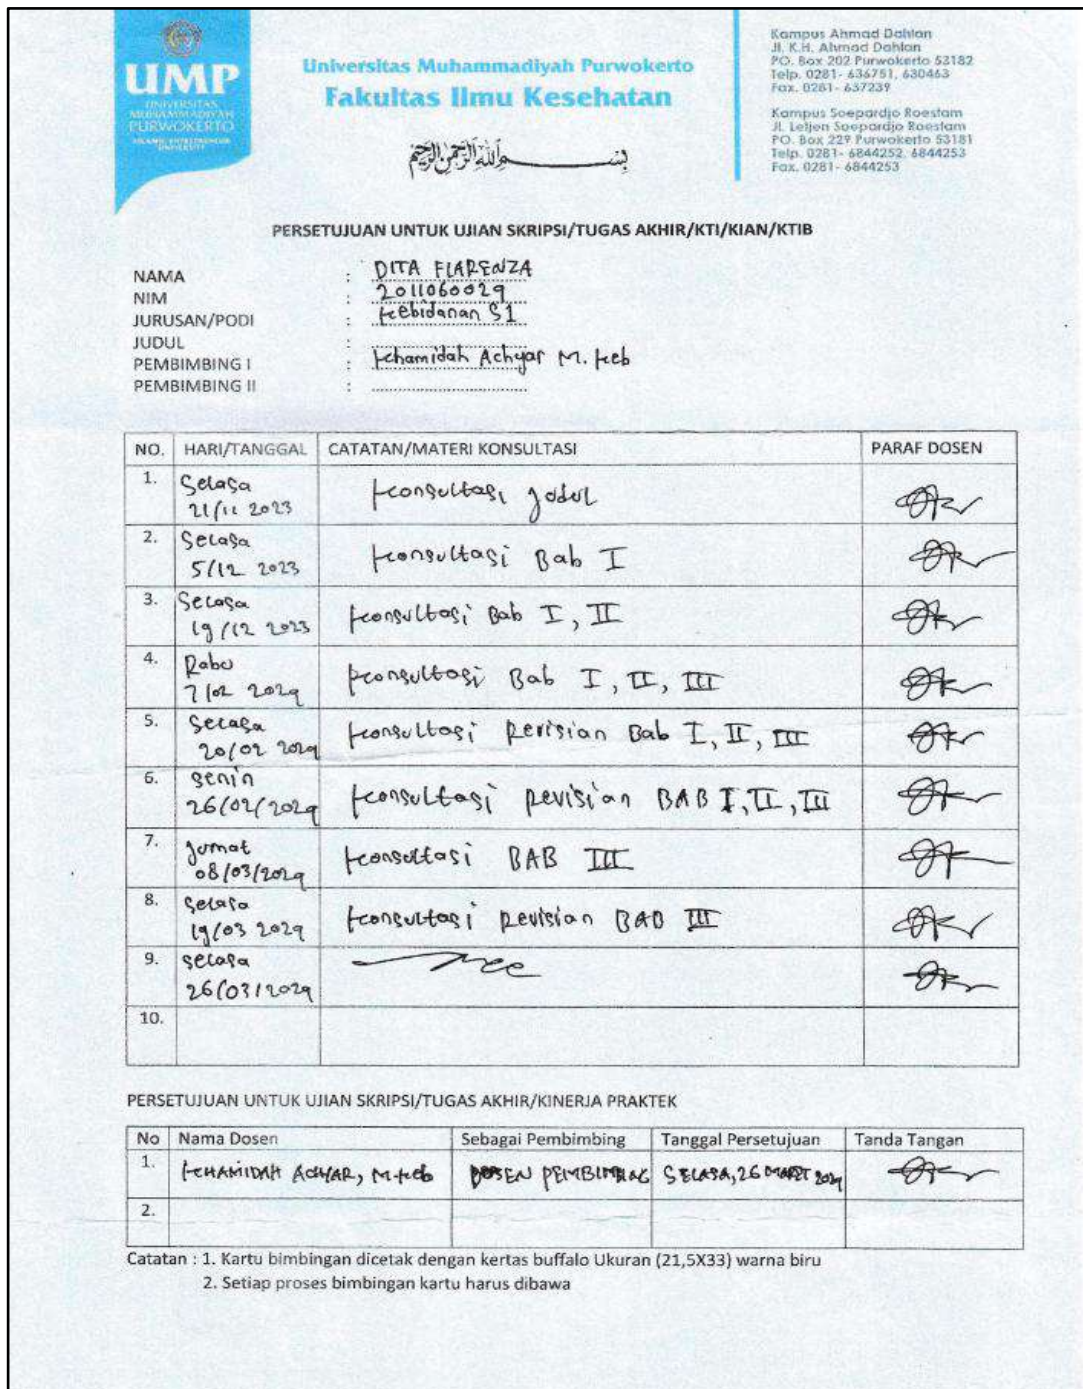 UMP
UNIVERSITAS
MUHAMMADIYAH
PURWOKERTO
ISLAMIC ENTREPRENEUR
UNIVERSITY
Universitas Muhammadiyah Purwokerto
Fakultas Ilmu Kesehatan
بِسْمِ اللَّهِ الرَّحْمَنِ الرَّحِيمِ
Kampus Ahmad Dahlan
Jl. K.H. Ahmad Dahlan
PO. Box 202 Purwokerto 53182
Telp. 0281- 636751, 630463
Fax. 0281- 637239
Kampus Soepardjo Roestam
Jl. Letjen Soepardjo Roestam
PO. Box 229 Purwokerto 53181
Telp. 0281- 6844252, 6844253
Fax. 0281- 6844253
PERSETUJUAN UNTUK UJIAN SKRIPSI/TUGAS AKHIR/KTI/KIAN/KTIB
NAMA : DITA FLARENZA
NIM : 2011060029
JURUSAN/PODI : Kebidanan S1
JUDUL :
PEMBIMBING I : Khamidah Achyar M. Keb
PEMBIMBING II :
NO. HARI/TANGGAL CATATAN/MATERI KONSULTASI PARAF DOSEN
1. Selasa 21/11 2023 Konsultasi judul
2. Selasa 5/12 2023 Konsultasi Bab I
3. Selasa 19/12 2023 Konsultasi Bab I, II
4. Rabu 7/02 2024 Konsultasi Bab I, II, III
5. Selasa 20/02 2024 Konsultasi Revisian Bab I, II, III
6. Senin 26/02/2024 Konsultasi Revisian BAB I, II, III
7. Jumat 08/03/2024 Konsultasi BAB III
8. Selasa 19/03 2024 Konsultasi Revisian BAB III
9. Selasa 26/03/2024 Acc
10.
PERSETUJUAN UNTUK UJIAN SKRIPSI/TUGAS AKHIR/KINERJA PRAKTEK
No Nama Dosen Sebagai Pembimbing Tanggal Persetujuan Tanda Tangan
1. KHAMIDAH ACHYAR, M.Keb DOSEN PEMBIMBING SELASA, 26 MARET 2024
2.
Catatan : 1. Kartu bimbingan dicetak dengan kertas buffalo Ukuran (21,5X33) warna biru
2. Setiap proses bimbingan kartu harus dibawa